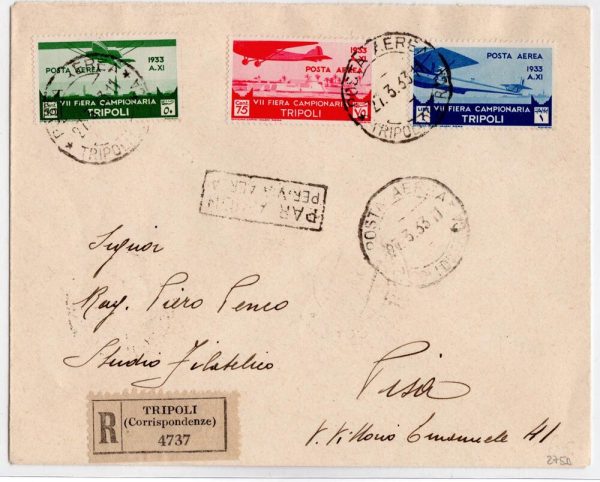 POSTA AEREA
1933
A. XI
VII FIERA CAMPIONARIA
TRIPOLI
1933
A. XI
POSTA AEREA
VII FIERA CAMPIONARIA
75 TRIPOLI
POSTA AEREA
1933
A. XI
VII FIERA CAMPIONARIA
TRIPOLI
POSTA AEREA
TRIPOLI
POSTA AEREA
21.3.33.11
TRIPOLI
PAR AVION
PER VIA AEREA
POSTA AEREA
21.3.33.11
Signor
Rag. Piero Penco
Studio Filatelico
Pisa
V. Vittorio Emanuele 41
R
TRIPOLI
(Corrispondenze)
4737